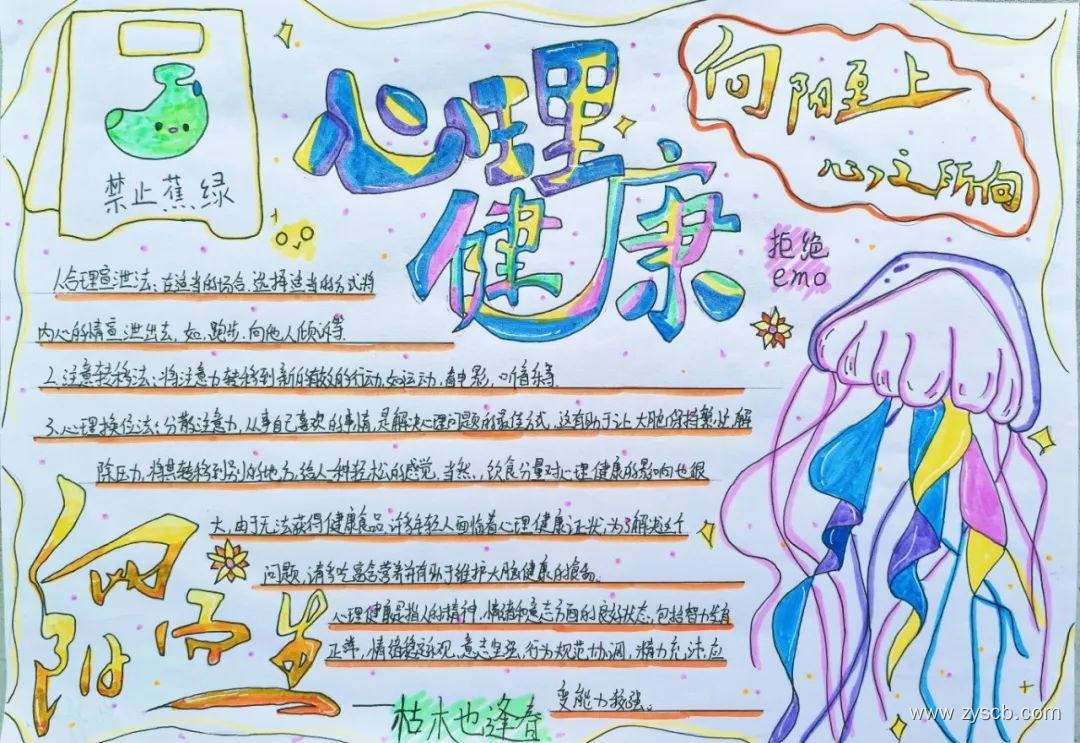 禁止蕉绿
心理
健康
向阳至上
心之所向
拒绝
emo
1.合理宣泄法：在适当的场合，选择适当的方式将
内心的情宣泄出去，如，跑步，向他人倾诉等.
2.注意转移法：将注意力转移到新的有效的行动，如运动，看电影，听音乐等.
3.心理换位法：分散注意力，从事自己喜欢的事情，是解决心理问题的最佳方式，这有助于让大脑保持繁忙，解
除压力，将其转移到别的地方，给人一种轻松的感觉，当然、饮食分量对心理健康的影响也很
大，由于无法获得健康食品，许多年轻人面临着心理健康症状，为了解决这个
问题，请多吃富含营养并有助于维护大脑健康的食物.
心理健康是指人的精神，情绪和意志方面的良好状态，包括智力发育
正常，情绪稳定乐观，意志坚强，行为规范协调，精力充沛，应
变能力较强。
向
阳而生
—枯木也逢春
www.zyscb.com